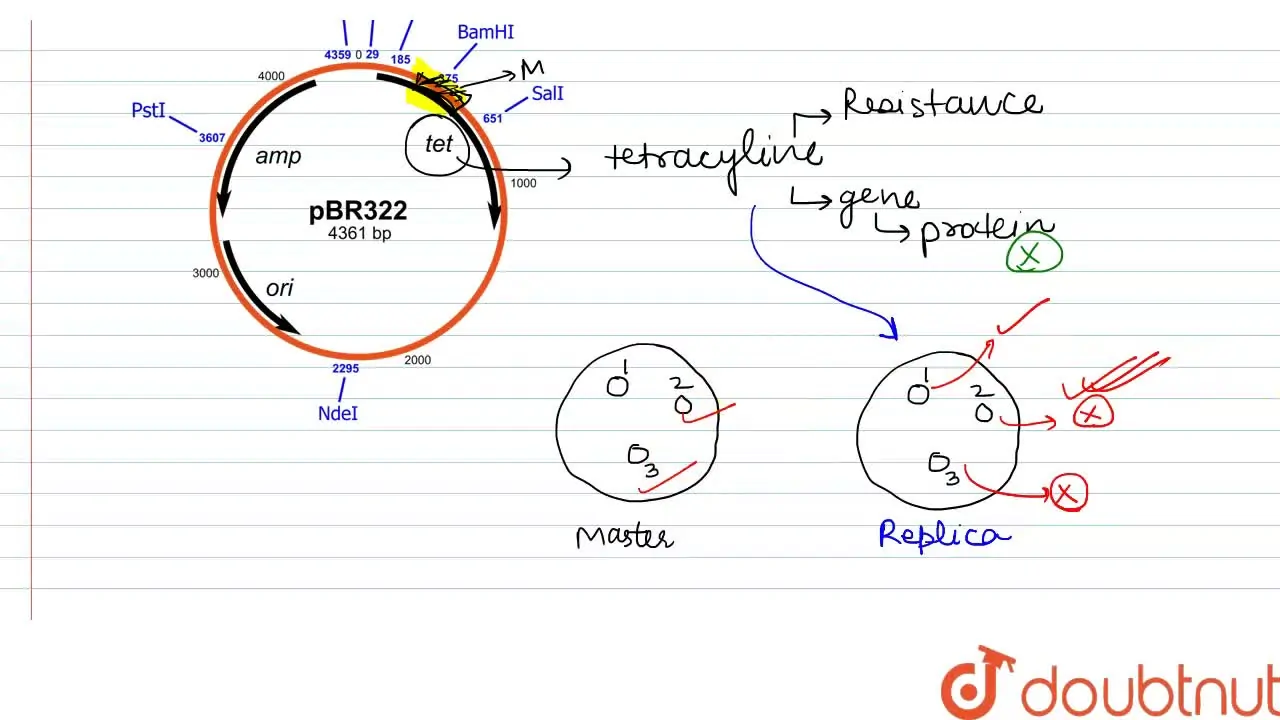 BamHI
4359 0 29
185
4000
375
M
SalI
Resistance
PstI
651
3607
amp
tet
tetracyline
1000
gene
pBR322
4361 bp
protein
X
3000
ori
2000
2295
NdeI
1
2
3
Master
1
2
X
3
X
Replica
doubtnut